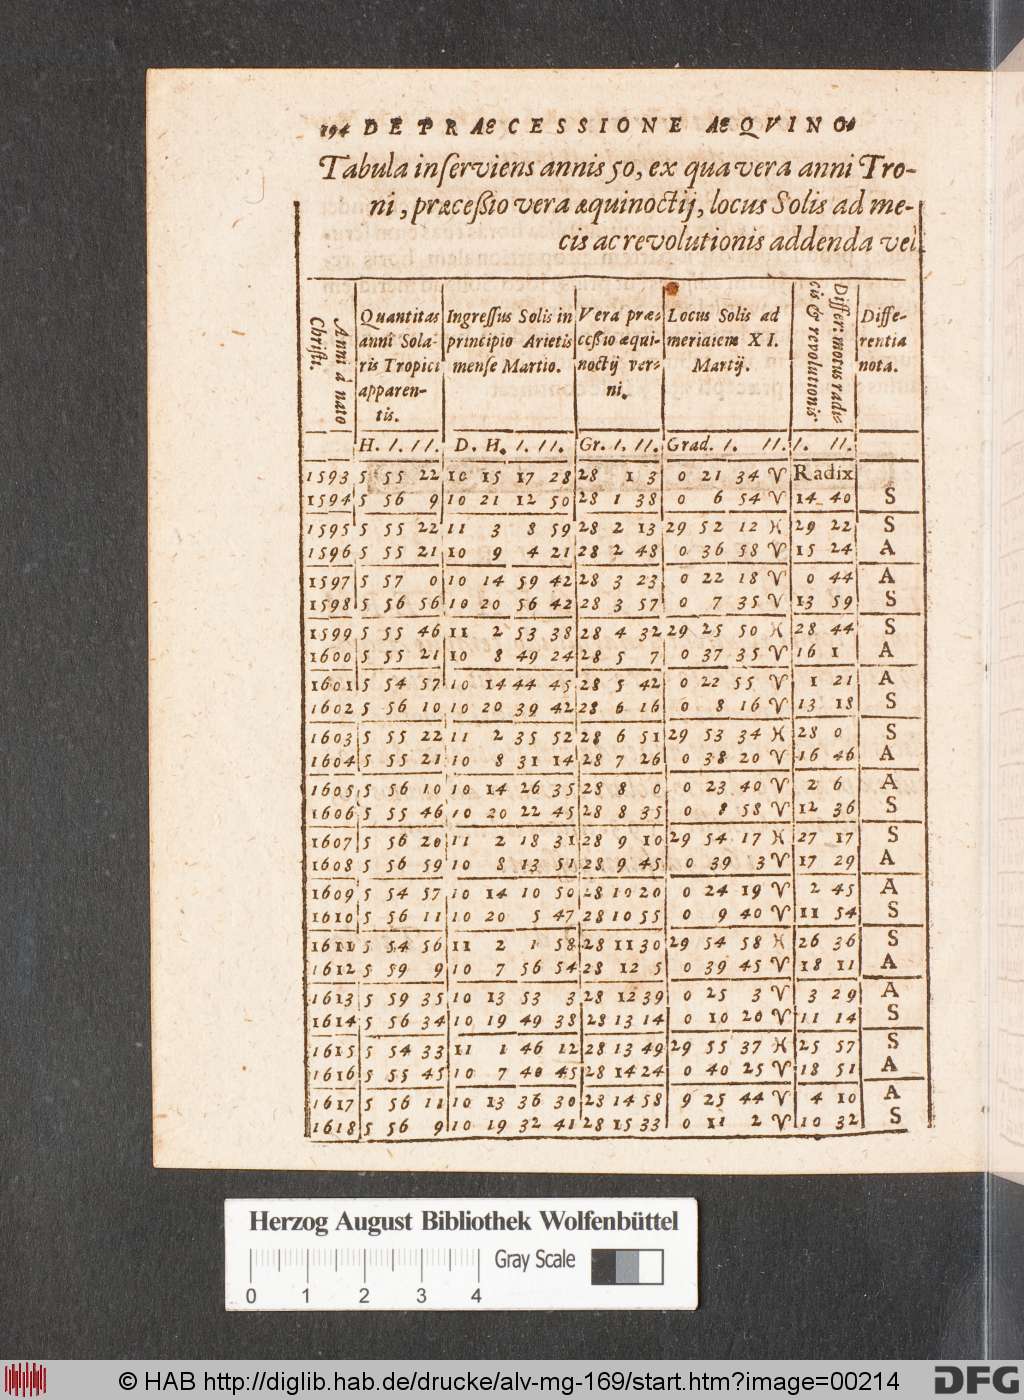 194 DE PRÆCESSIONE ÆQVINO-
Tabula inſerviens annis 50, ex qua vera anni Tro-
ni, præceßio vera æquinoctij, locus Solis ad me-
cis ac revolutionis addenda vel
Anni à nato Chriſti.
Quantitas anni Sola- ris Tropici apparen- tis.
Ingreſſus Solis in principio Arietis menſe Martio.
Vera præ- ceßio æqui- noctij ver- ni.
Locus Solis ad meridiem XI. Martij.
Differ: motus radi- cis & revolutionis
Diffe- rentiæ nota.
H. I. II. D. H. I. II. Gr. I. II. Grad. I. II. I. II.
1593 5 55 22 10 15 17 28 28 1 3 0 21 34 ♈ Radix
1594 5 56 9 10 21 12 50 28 1 38 0 6 54 ♈ 14 40 S
1595 5 55 22 11 3 8 59 28 2 13 29 52 12 ♓ 29 22 S
1596 5 55 21 10 9 4 21 28 2 48 0 36 58 ♈ 15 24 A
1597 5 57 0 10 14 59 42 28 3 23 0 22 18 ♈ 0 44 A
1598 5 56 56 10 20 56 42 28 3 57 0 7 35 ♈ 13 59 S
1599 5 55 46 11 2 53 38 28 4 32 29 25 50 ♓ 28 44 S
1600 5 55 21 10 8 49 24 28 5 7 0 37 35 ♈ 16 1 A
1601 5 54 57 10 14 44 45 28 5 42 0 22 55 ♈ 1 21 A
1602 5 56 10 10 20 39 42 28 6 16 0 8 16 ♈ 13 18 S
1603 5 55 22 11 2 35 52 28 6 51 29 53 34 ♓ 28 0 S
1604 5 55 21 10 8 31 14 28 7 26 0 38 20 ♈ 16 46 A
1605 5 56 10 10 14 26 35 28 8 0 0 23 40 ♈ 2 6 A
1606 5 55 46 10 20 22 45 28 8 35 0 8 58 ♈ 12 36 S
1607 5 56 20 11 2 18 31 28 9 10 29 54 17 ♓ 27 17 S
1608 5 56 59 10 8 13 51 28 9 45 0 39 3 ♈ 17 29 A
1609 5 54 57 10 14 10 50 28 10 20 0 24 19 ♈ 2 45 A
1610 5 56 11 10 20 5 47 28 10 55 0 9 40 ♈ 11 54 S
1611 5 54 56 11 2 1 58 28 11 30 29 54 58 ♓ 26 36 S
1612 5 59 9 10 7 56 54 28 12 5 0 39 45 ♈ 18 11 A
1613 5 59 35 10 13 53 3 28 12 39 0 25 3 ♈ 3 29 A
1614 5 56 34 10 19 49 38 28 13 14 0 10 20 ♈ 11 14 S
1615 5 54 33 11 1 46 12 28 13 49 29 55 37 ♓ 25 57 S
1616 5 55 45 10 7 40 45 28 14 24 0 40 25 ♈ 18 51 A
1617 5 56 11 10 13 36 30 23 14 58 9 25 44 ♈ 4 10 A
1618 5 56 9 10 19 32 41 28 15 33 0 11 2 ♈ 10 32 S
Herzog August Bibliothek Wolfenbüttel
Gray Scale
0 1 2 3 4
© HAB http://diglib.hab.de/drucke/alv-mg-169/start.htm?image=00214
DFG